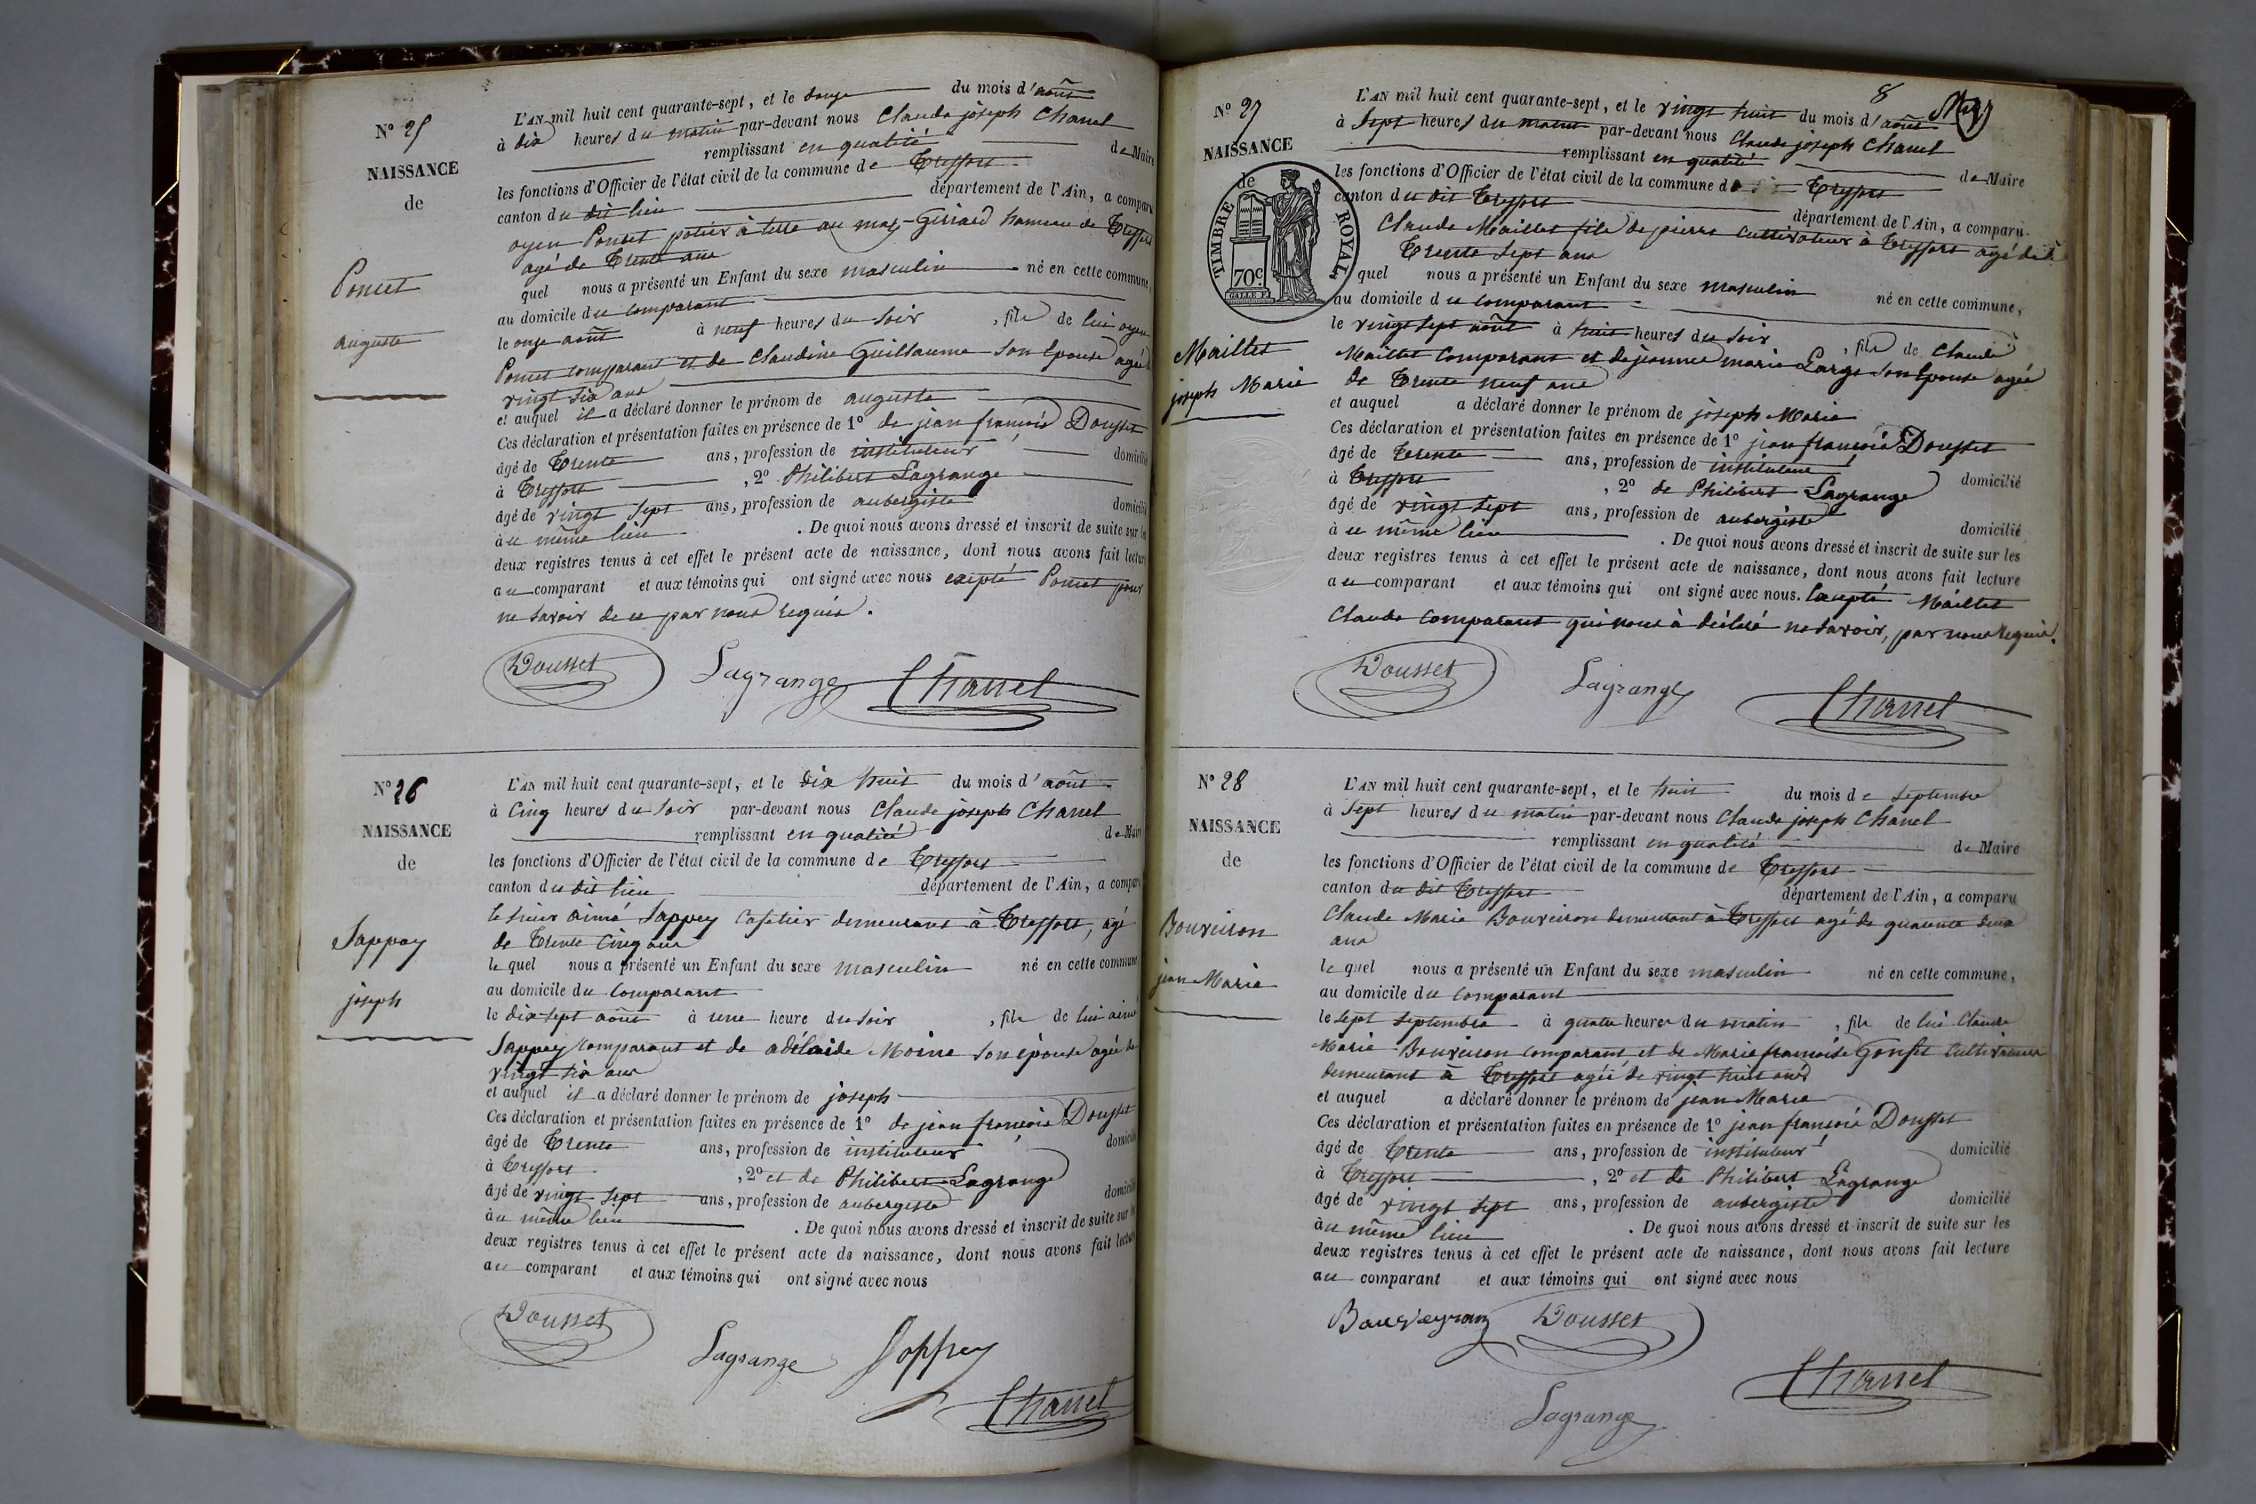 N° 25
NAISSANCE
de
Poncet
auguste
L'AN mil huit cent quarante-sept, et le douze du mois d'août
à dix heures du matin par-devant nous Claude joseph Chanel
remplissant en qualité de Maire
les fonctions d'Officier de l'état civil de la commune de Treffort
canton du dit lieu département de l'Ain, a comparu
oyen Poncet potier à terre au mas-Girard hameau de Treffort
agé de Trente ans
quel nous a présenté un Enfant du sexe masculin né en cette commune,
au domicile du comparant
le onze août à neuf heures du soir, fils de lui oyen
Poncet comparant et de Claudine Guillaume son épouse agée
vingt six ans
et auquel il a déclaré donner le prénom de auguste
Ces déclaration et présentation faites en présence de 1° de jean françois Dousset
âgé de Trente ans, profession de instituteur domicilié
à Treffort, 2° Philibert Lagrange
âgé de vingt sept ans, profession de aubergiste domicilié
à u même lieu. De quoi nous avons dressé et inscrit de suite sur les
deux registres tenus à cet effet le présent acte de naissance, dont nous avons fait lecture
au comparant et aux témoins qui ont signé avec nous excepté Poncet pour
ne savoir de ce par nous requis.
Dousset Lagrange Chanel
N° 26
NAISSANCE
de
Sappey
joseph
L'AN mil huit cent quarante-sept, et le dix huit du mois d'août
à Cinq heures du soir par-devant nous Claude joseph Chanel
remplissant en qualité de Maire
les fonctions d'Officier de l'état civil de la commune de Treffort
canton du dit lieu département de l'Ain, a comparu
le sieur aimé Sappey Cafetier demeurant à Treffort, agé
de Trente Cinq ans
le quel nous a présenté un Enfant du sexe masculin né en cette commune
au domicile du Comparant
le dix sept août à une heure du soir, fils de lui aimé
Sappey comparant et de adélaide Moine son épouse agée de
vingt six ans
et auquel il a déclaré donner le prénom de joseph
Ces déclaration et présentation faites en présence de 1° de jean françois Dousset
âgé de Trente ans, profession de instituteur domicilié
à Treffort, 2° et de Philibert Lagrange
âgé de vingt sept ans, profession de aubergiste domicilié
à u même lieu. De quoi nous avons dressé et inscrit de suite sur les
deux registres tenus à cet effet le présent acte de naissance, dont nous avons fait lecture
au comparant et aux témoins qui ont signé avec nous
Dousset
Lagrange Sappey
Chanel
8
N° 27
NAISSANCE
de
TIMBRE ROYAL
70c
Maillet
joseph Marie
L'AN mil huit cent quarante-sept, et le vingt huit du mois d'août
à Sept heures du matin par-devant nous Claude joseph Chanel
remplissant en qualité de Maire
les fonctions d'Officier de l'état civil de la commune de Treffort
canton du dit Treffort département de l'Ain, a comparu
Claude Maillet fils de pierre Cultivateur à Treffort agé de
Trente Sept ans
quel nous a présenté un Enfant du sexe masculin né en cette commune,
au domicile du comparant
le vingt sept août à huit heures du soir, fils de Claude
Maillet Comparant et de jeanne marie Large son épouse agée
de Trente neuf ans
et auquel a déclaré donner le prénom de joseph Marie
Ces déclaration et présentation faites en présence de 1° jean françois Dousset
âgé de Trente ans, profession de instituteur
à Treffort, 2° de Philibert Lagrange domicilié
âgé de vingt sept ans, profession de aubergiste domicilié
à u même lieu. De quoi nous avons dressé et inscrit de suite sur les
deux registres tenus à cet effet le présent acte de naissance, dont nous avons fait lecture
au comparant et aux témoins qui ont signé avec nous. Excepté Maillet
Claude Comparant qui nous à déclaré ne savoir, par nous requis.
Dousset Lagrange Chanel
N° 28
NAISSANCE
de
Bouveiron
jean Marie
L'AN mil huit cent quarante-sept, et le huit du mois de Septembre
à Sept heures du matin par-devant nous Claude joseph Chanel
remplissant en qualité de Maire
les fonctions d'Officier de l'état civil de la commune de Treffort
canton du dit Treffort département de l'Ain, a comparu
Claude Marie Bouveiron demeurant à Treffort agé de quarante deux
ans
le quel nous a présenté un Enfant du sexe masculin né en cette commune,
au domicile du Comparant
le sept Septembre à quatre heures du matin, fils de lui Claude
Marie Bouveiron comparant et de Marie françoise Cultivateurs
demeurant à Treffort agée de vingt huit ans
et auquel a déclaré donner le prénom de jean Marie
Ces déclaration et présentation faites en présence de 1° jean françois Dousset
âgé de Trente ans, profession de instituteur domicilié
à Treffort, 2° et de Philibert Lagrange
âgé de vingt sept ans, profession de aubergiste domicilié
à u même lieu. De quoi nous avons dressé et inscrit de suite sur les
deux registres tenus à cet effet le présent acte de naissance, dont nous avons fait lecture
au comparant et aux témoins qui ont signé avec nous
Bauveyron Dousset
Chanel
Lagrange